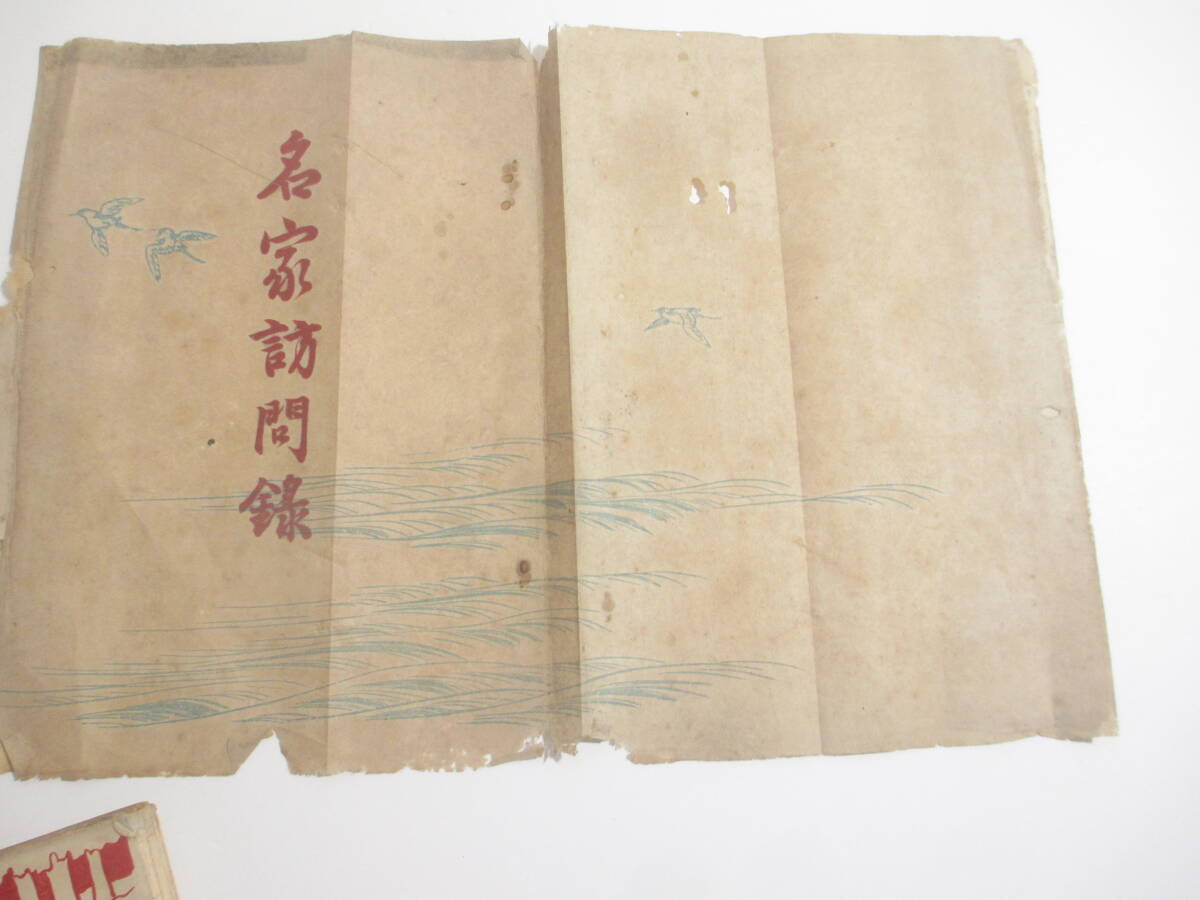 名家訪問録